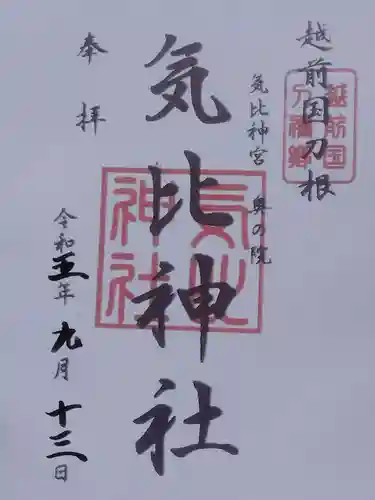 越前国刀根
気比神宮 奥の院
気比神社
奉拝
令和五年九月十三日
越前国
刀禰郷
気比
神社